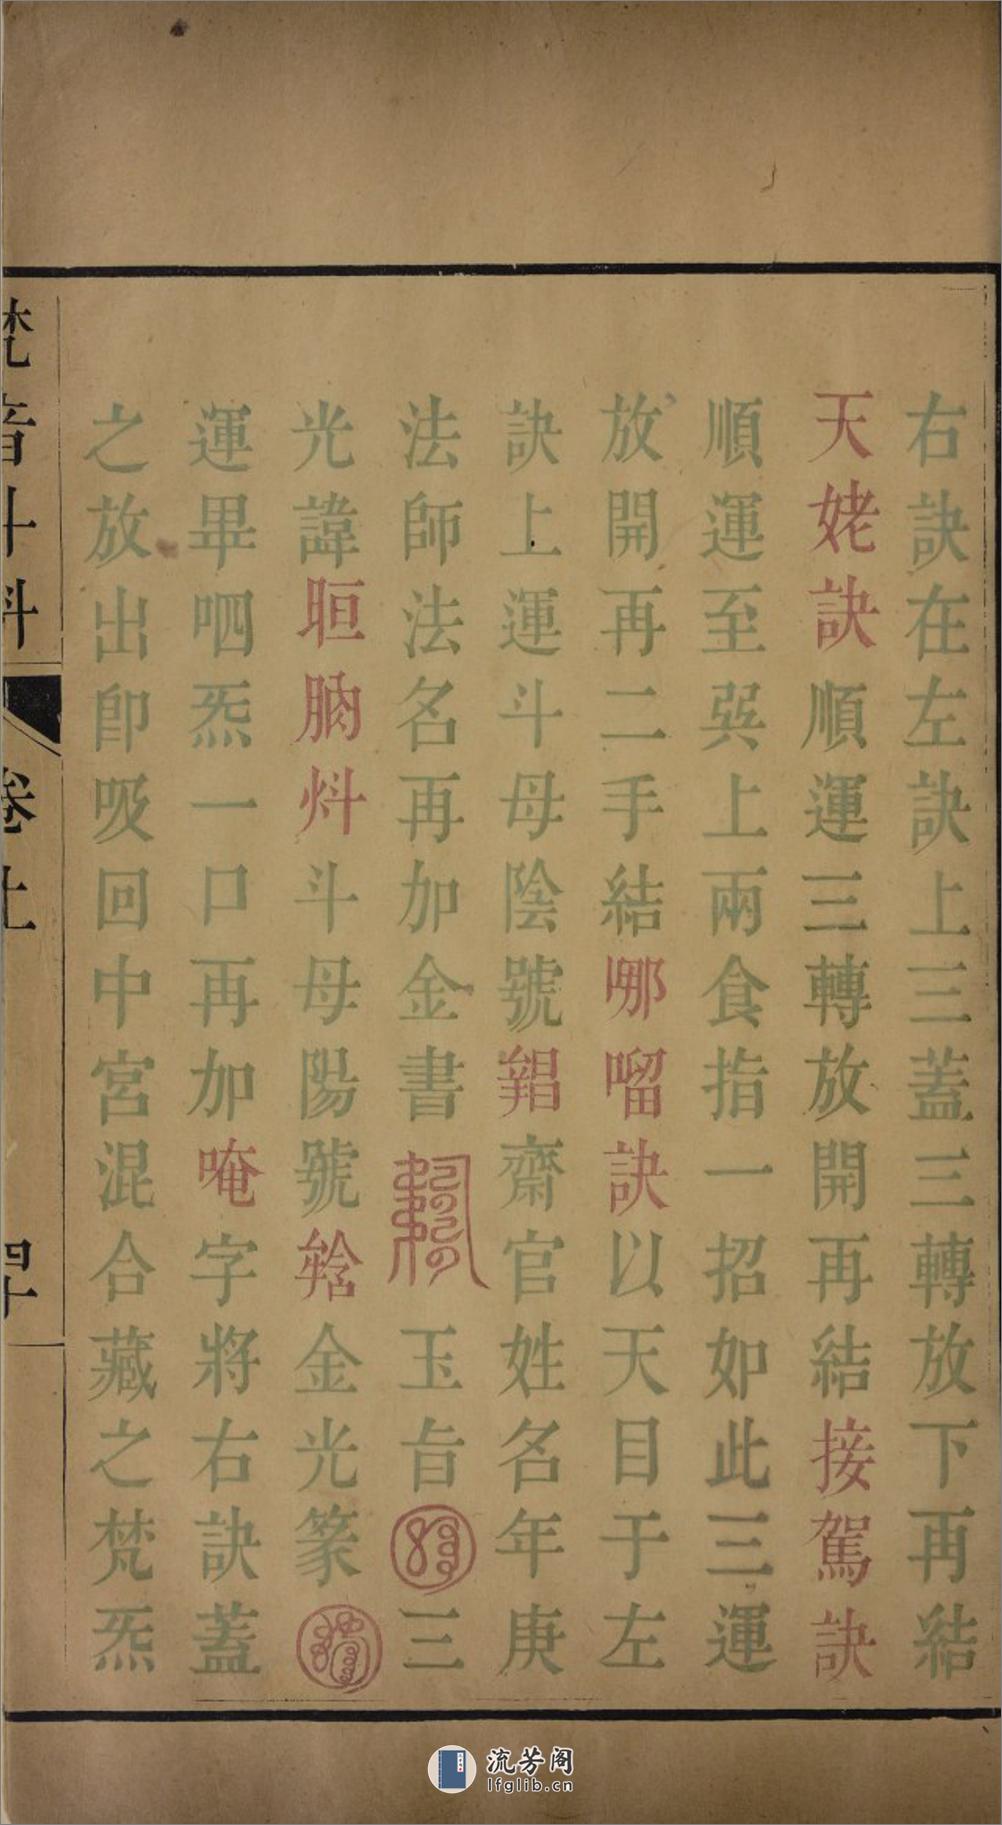 右訣在左訣上三蓋三轉放下再結
天姥訣順運三轉放開再結接駕訣
順運至巽上兩食指一招如此三運
放開再二手結哪𠺕訣以天目于左
訣上運斗母陰號齋官姓名年庚
法師法名再加金書玉旨三
光諱斗母陽號金光篆
運畢呬炁一口再加唵字將右訣蓋
之放出卽吸回中宮混合藏之梵炁
梵音斗科
卷上
四十
流芳阁
lfglib.cn